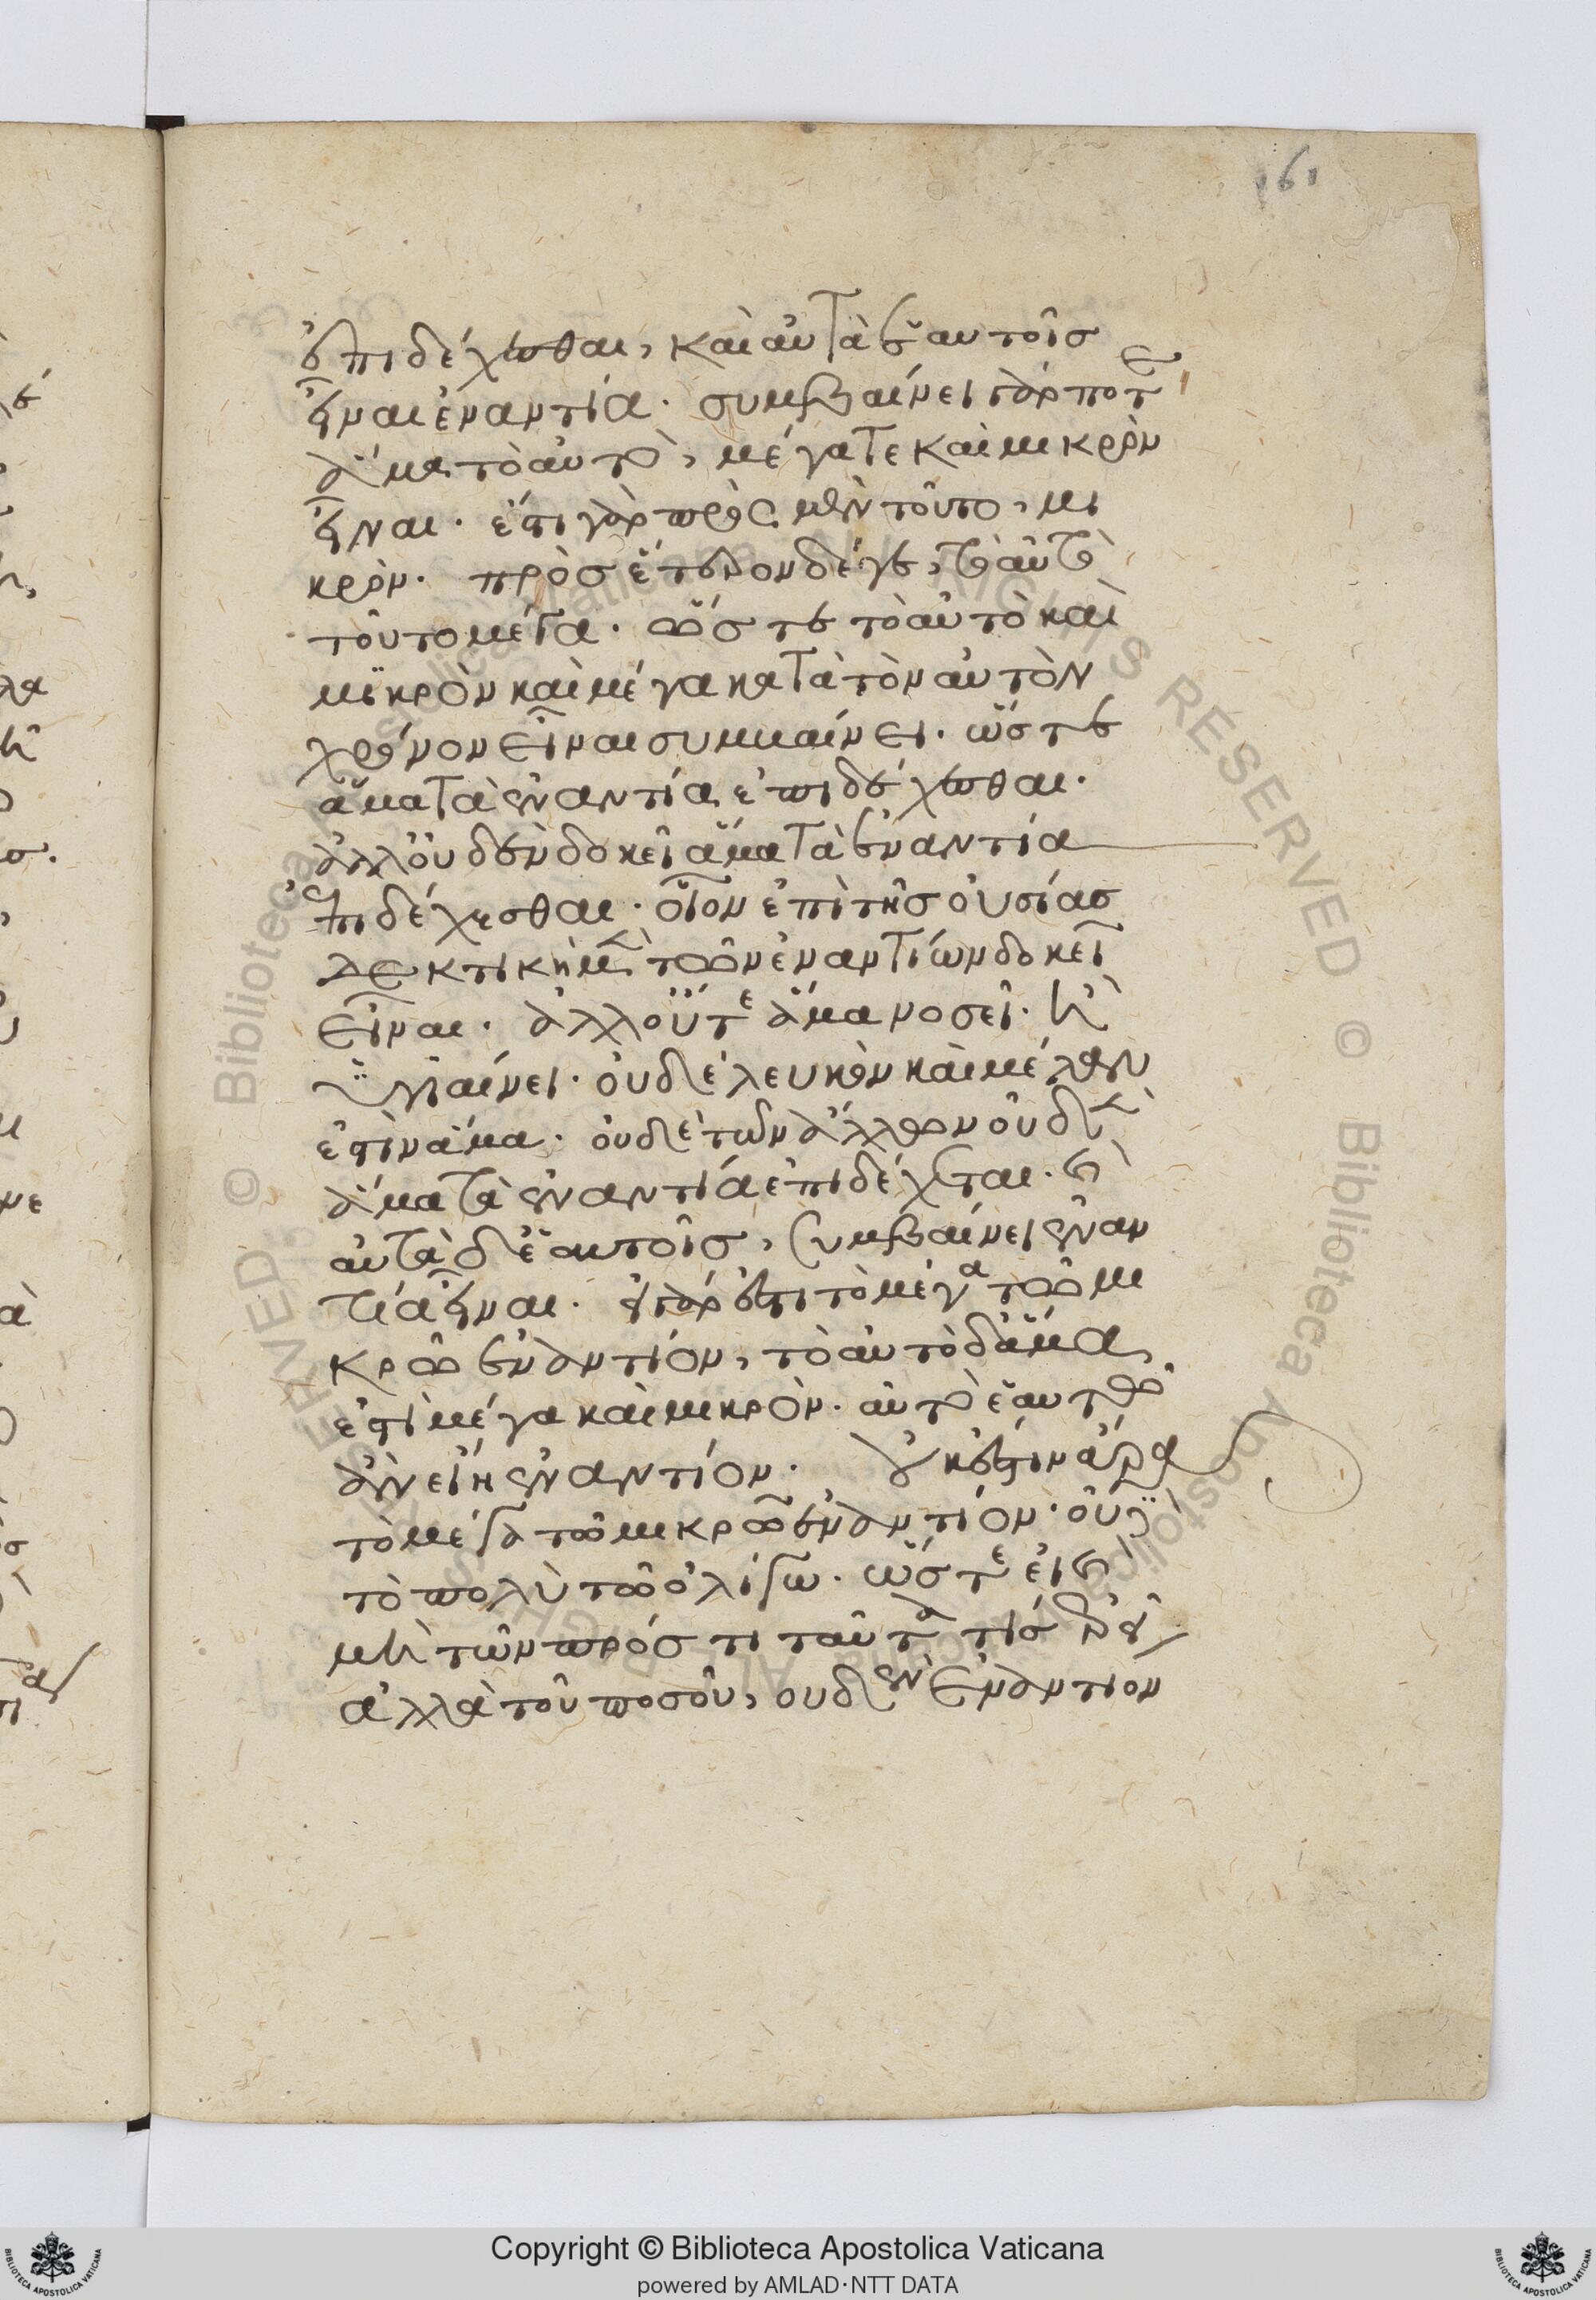 161
ἐπιδέχεσθαι, καὶ αὐτὰ ἑαυτοῖς
εἶναι ἐναντία. συμβαίνει γάρ ποτε
ἅμα τὸ αὐτὸ, μέγα τε καὶ μικρὸν
εἶναι. ἔστι γὰρ πρὸς μὲν τοῦτο, μι
κρὸν. πρὸς ἕτερον δέ γε, τὸ αὐτὸ
τοῦτο μέγα. ὥστε τὸ αὐτὸ καὶ
μϊκρὸν καὶ μέγα κατὰ τὸν αὐτὸν
χρόνον εἶναι συμβαίνει. ὥστε
ἅμα τὰ ἐναντία ἐπιδέχεσθαι.
ἀλλ' οὐδὲν δοκεῖ ἅμα τὰ ἐναντία
ἐπιδέχεσθαι. οἷον ἐπὶ τῆς οὐσίας
δεκτικὴ μὲν τῶν ἐναντίων δοκεῖ
εἶναι. ἀλλ' οὔτε ἅμα νοσεῖ. καὶ
ὑγιαίνει. οὐδὲ λευκὸν καὶ μέλαν
ἐστὶν ἅμα. οὐδὲ τῶν ἄλλων οὐδὲν
ἅμα τὰ ἐναντία ἐπιδέχεται. καὶ
αὐτὰ δ' ἑαυτοῖς, συμβαίνει ἐναν
τία εἶναι. εἰ γάρ ἐστι τὸ μέγα τῶ μι
κρῶ ἐναντίον, τὸ αὐτὸ δ' ἅμα
ἐστὶ μέγα καὶ μικρὸν. αὐτὸ ἑαυτῶ
ἂν εἴη ἐναντίον. οὐκ ἔστιν ἄρα
τὸ μέγα τῶ μικρῶ ἐναντίον. οὐδὲ
τὸ πολὺ τῶ ὀλίγω. ὥστε εἰ καὶ
μὴ τῶν πρός τι ταῦτά τις ἐρεῖ
ἀλλὰ τοῦ ποσοῦ, οὐδὲν ἐναντίον
Copyright © Biblioteca Apostolica Vaticana
powered by AMLAD·NTT DATA